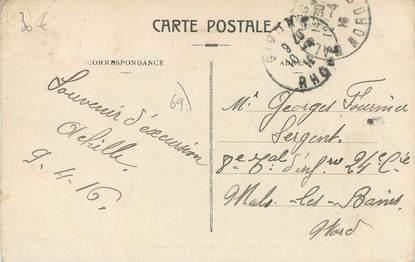 30 €
CARTE POSTALE
CORRESPONDANCE
69
RHONE
NORD
Souvenir d'excursion
Achille.
9.4.16.
Mr Georges Fournier
Sergent.
8e d'infrie 24e Cie
Malo-les-Bains
Nord